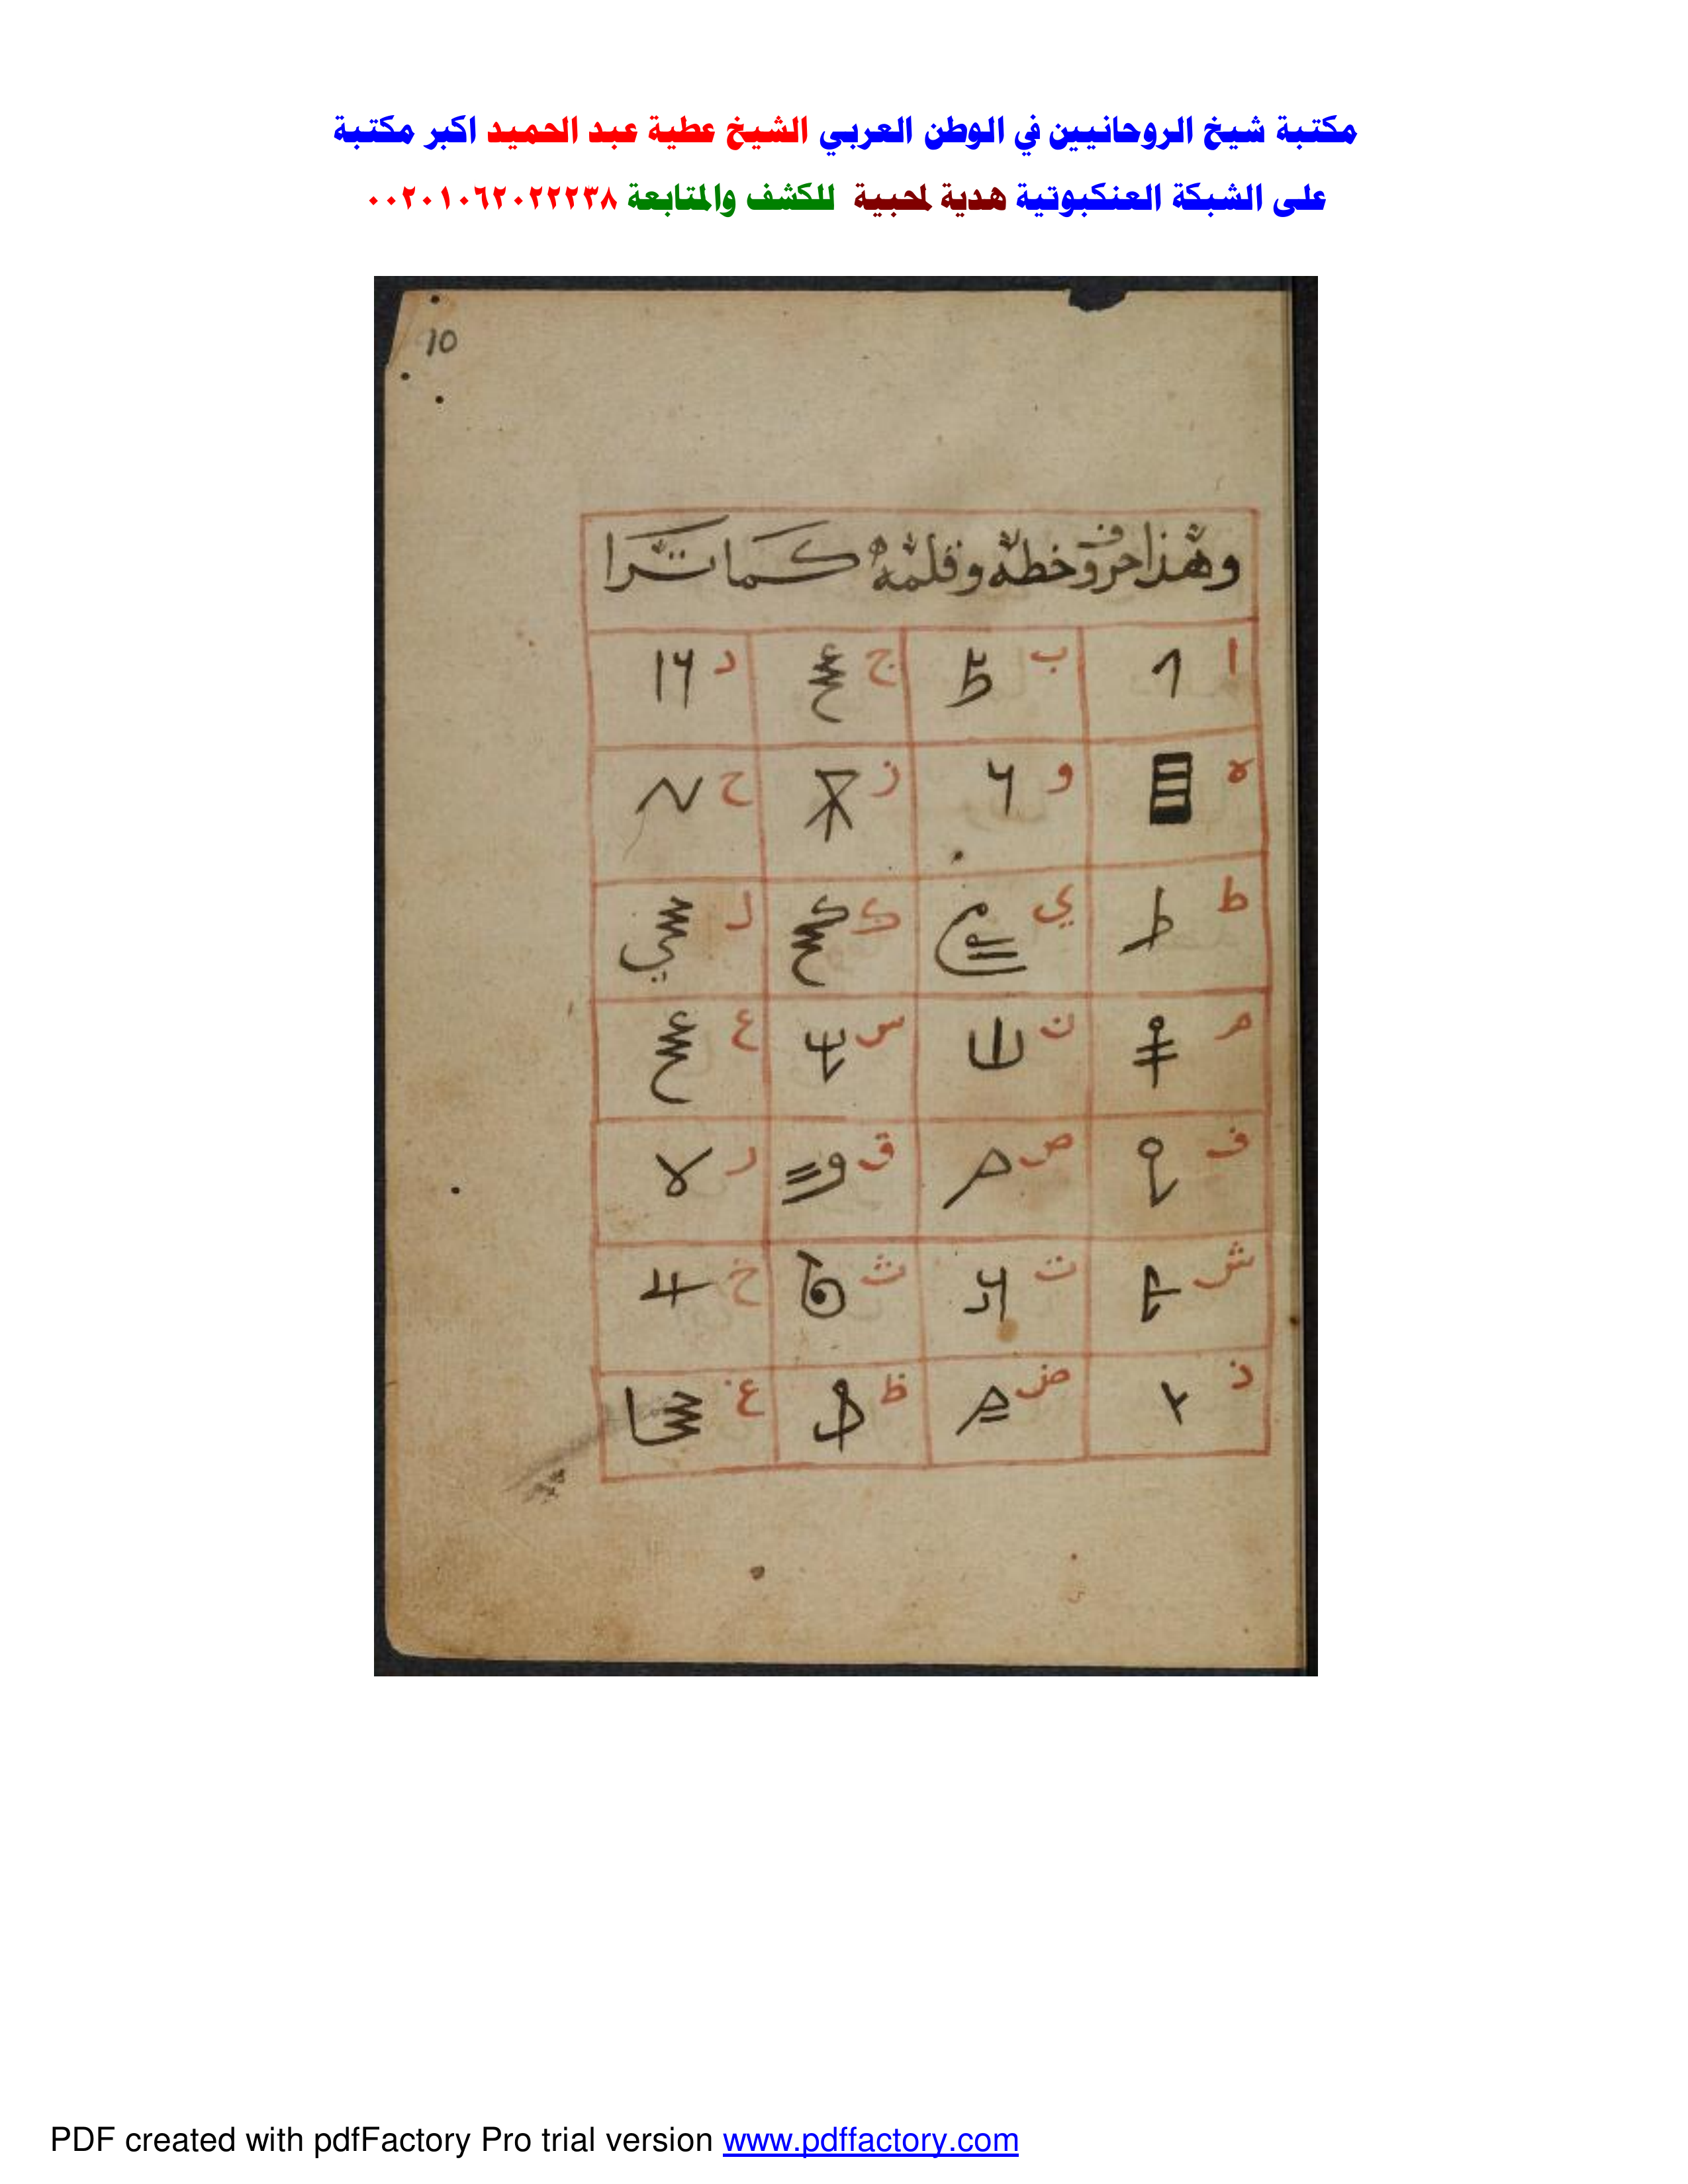 مكتبة شيخ الروحانيين في الوطن العربي الشيخ عطية عبد الحميد اكبر مكتبة
على الشبكة العنكبوتية هدية لمحبية للكشف والمتابعة ٠٠٢٠١٠٦٢٠٢٢٢٣٨
10
وهذا حروف خطه وقلمه كما ترا
ا ب ج د
ه و ز ح
ط ي ك ل
م ن س ع
ف ص ق ر
ش ت ث خ
ذ ض ظ غ
PDF created with pdfFactory Pro trial version www.pdffactory.com